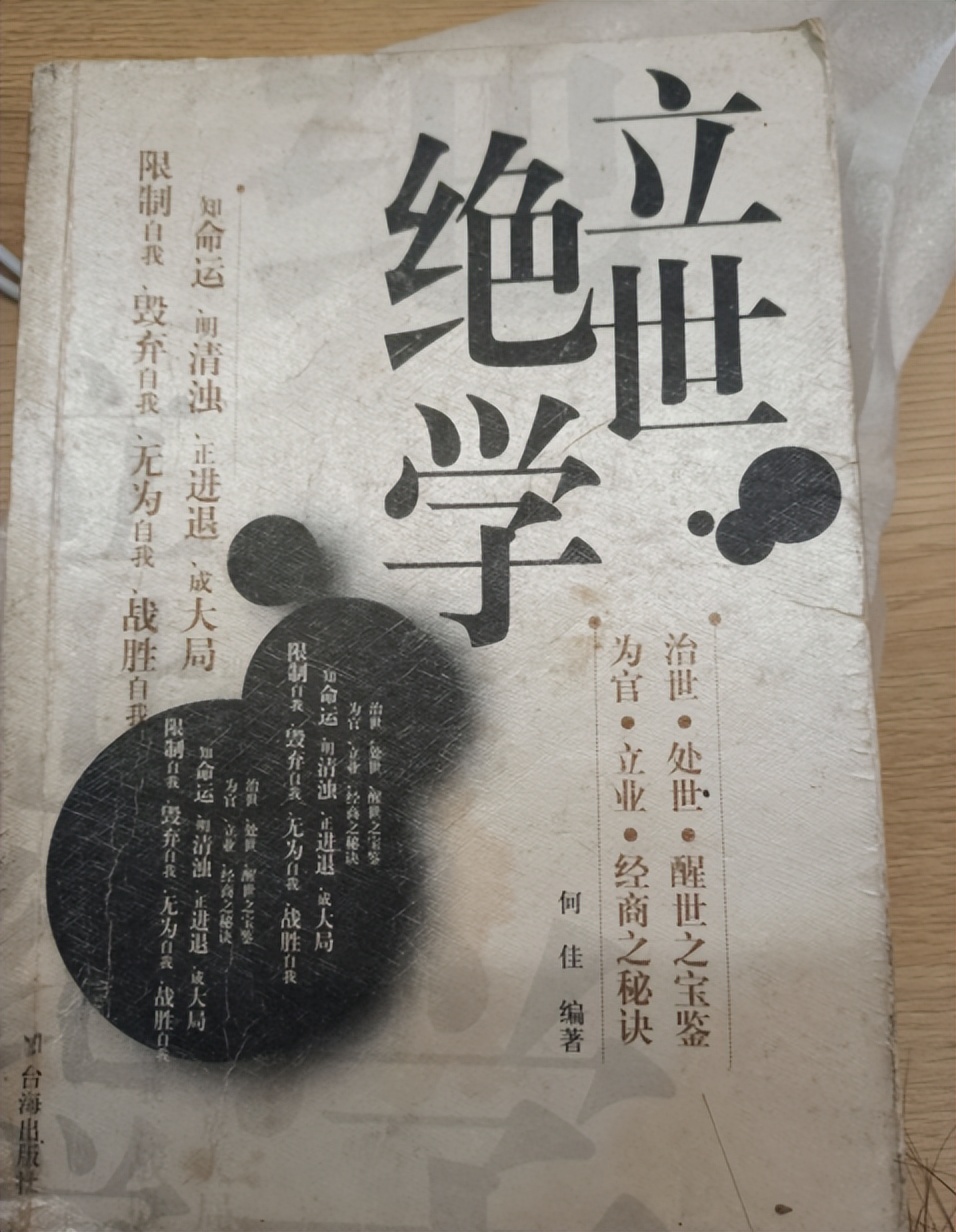 立世
绝学
治世·处世·醒世之宝鉴
为官·立业·经商之秘诀
何佳 编著
知命运、明清浊、正进退、成大局
限制自我、毁弃自我、无为自我、战胜自我
治世 处世 醒世之宝鉴
为官 立业 经商之秘诀
知命运 明清浊 正进退 成大局
限制自我 毁弃自我 无为自我 战胜自我
治世 处世 醒世之宝鉴
为官 立业 经商之秘诀
知命运 明清浊 正进退 成大局
限制自我 毁弃自我 无为自我 战胜自我
台海出版社